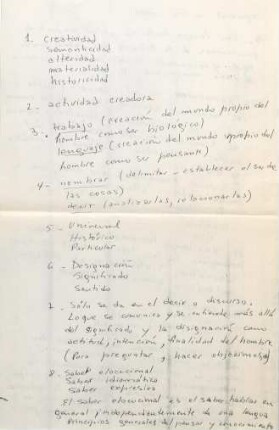 1. Creatividad
semanticidad
alteridad
materialidad
historicidad
2- actividad creadora
3. trabajo (creación del mundo propio del
hombre como ser biológico)
lenguaje (creación del mundo propio del
hombre como ser pensante)
4- nombrar (delimitar - establecer el ser de
las cosas)
decir (analizarlas, relacionarlas)
5- Universal
Histórico
Particular
6- Designación
Significado
Sentido
7- Sólo se da en el decir o discurso.
Lo que se comunica y se entiende más allá
del significado y la designación como
actitud, intención, finalidad del hombre
(Para preguntar, hacer objeciones)
8- Saber elocucional
Saber idiomático
Saber expresivo
El saber elocucional es el saber hablar en
general independientemente de una lengua
Principios generales del pensar y conocimiento